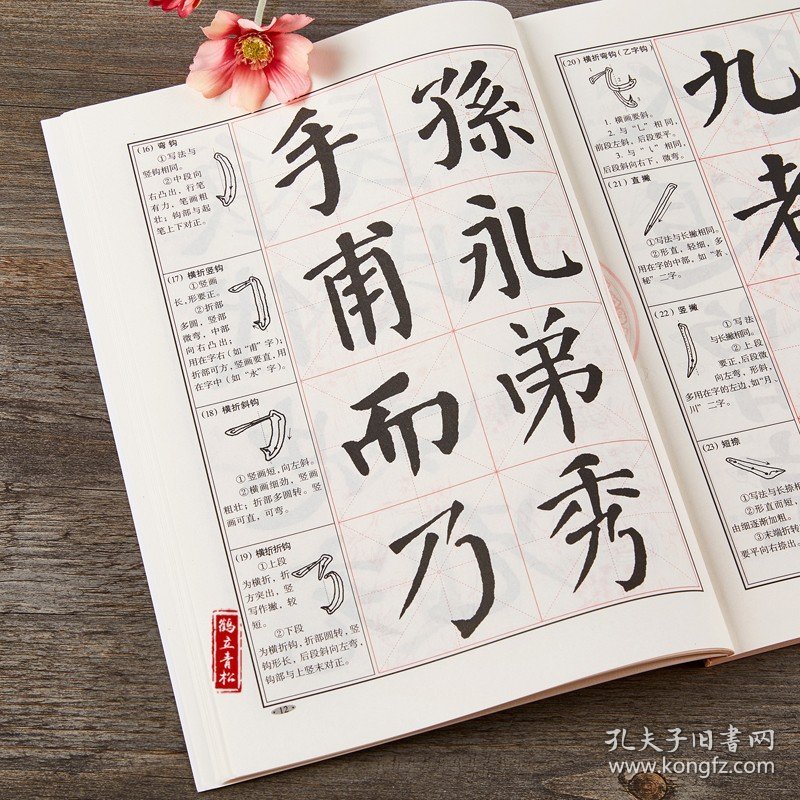 (16) 弯钩
①写法与
竖钩相同。
②中段向
右凸出，行笔
有力，笔画粗
壮；钩部与起
笔上下对正。
手 孫
(17) 横折竖钩
①竖画
长，形要正。
②折部
多圆，竖部
微弯，中部
向右凸出；
用在字右（如“甫”字）；
折部可方，竖画要直，用
在字中（如“永”字）。
甫 永
(18) 横折斜钩
①竖画短，向左斜。
②横画细劲，竖画
粗壮；折部多圆转。竖
画可直，可弯。
而 弟
(19) 横折折钩
①上段
为横折，折
方突出，竖
写作撇，较
短。
②下段
为横折钩，折部圆转，竖
钩形长，后段斜向左弯，
钩部与上竖末对正。
乃 秀
鹤立青松
·12·
(20) 横折弯钩（乙字钩）
1. 横画要斜。
2. 与“乚”相同，
前段左斜，后段要平。
3. 与“㇂”相同，
后段斜向右下，微弯。
九
(21) 直撇
①写法与长撇相同。
②形直，轻细，多
用在字的中部，如“者、
秘”二字。
者
(22) 竖撇
①写法
与长撇同。
②上段
要正，后段微
向左弯，形斜，
多用在字的左边，如“月、
川”二字。
(23) 短捺
①写法与长捺相
②形直而短，
由细逐渐加粗。
③末端折转
要平向右捺出。
孔夫子旧书网
www.kongfz.com